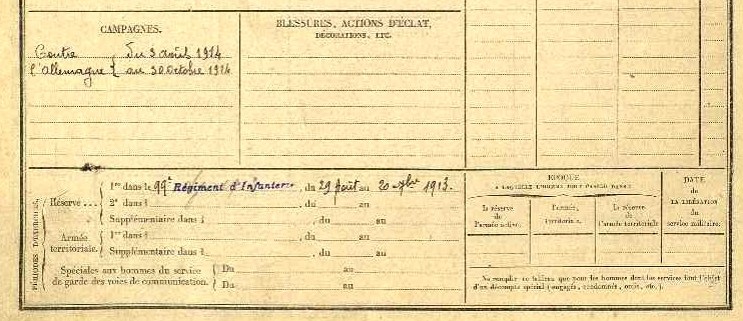 CAMPAGNES.
Contre l'Allemagne } du 3 août 1914
au 30 Octobre 1914
BLESSURES, ACTIONS D'ÉCLAT,
DÉCORATIONS, ETC.
PÉRIODES D'EXERCICES.
Réserve ... { 1re dans le 99e Régiment d'Infanterie, du 29 Août au 20 7bre 1913.
2e dans l , du au
Supplémentaire dans l , du au
Armée territoriale. { 1re dans l , du au
Supplémentaire dans l , du au
Spéciales aux hommes du service de garde des voies de communication. { Du au
Du au
ÉPOQUE
À LAQUELLE L'HOMME DOIT PASSER DANS :
la réserve de l'armée active.
l'armée territoriale.
la réserve de l'armée territoriale
DATE
DE
LA LIBÉRATION
du
service militaire.
Ne remplir ce tableau que pour les hommes dont les services font l'objet
d'un décompte spécial (engagés, condamnés, omis, etc.).